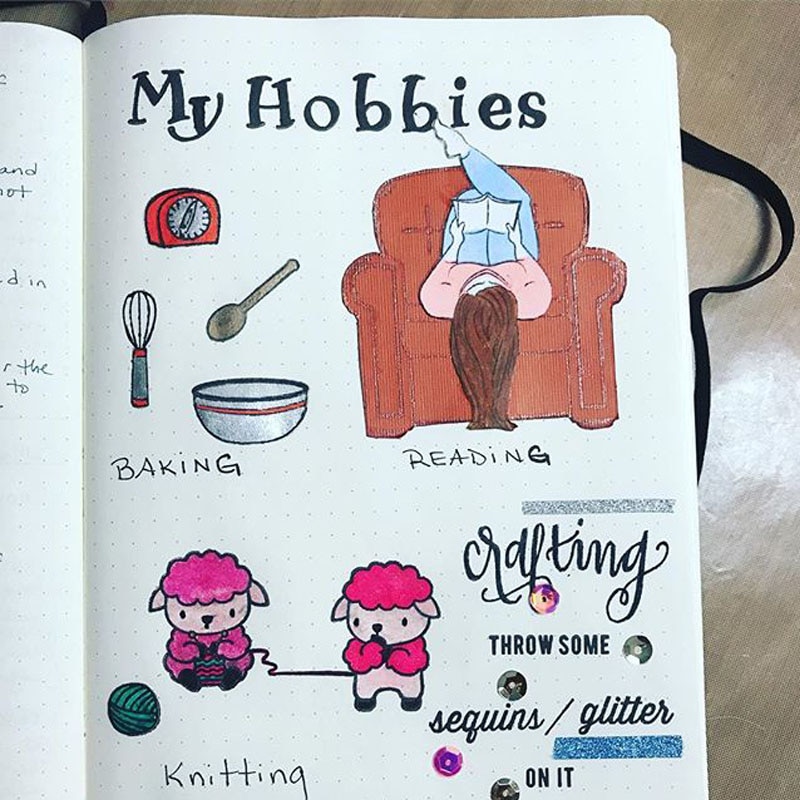 and
not
d in
r the
to
My Hobbies
BAKING
READING
crafting
THROW SOME
sequins / glitter
ON IT
Knitting